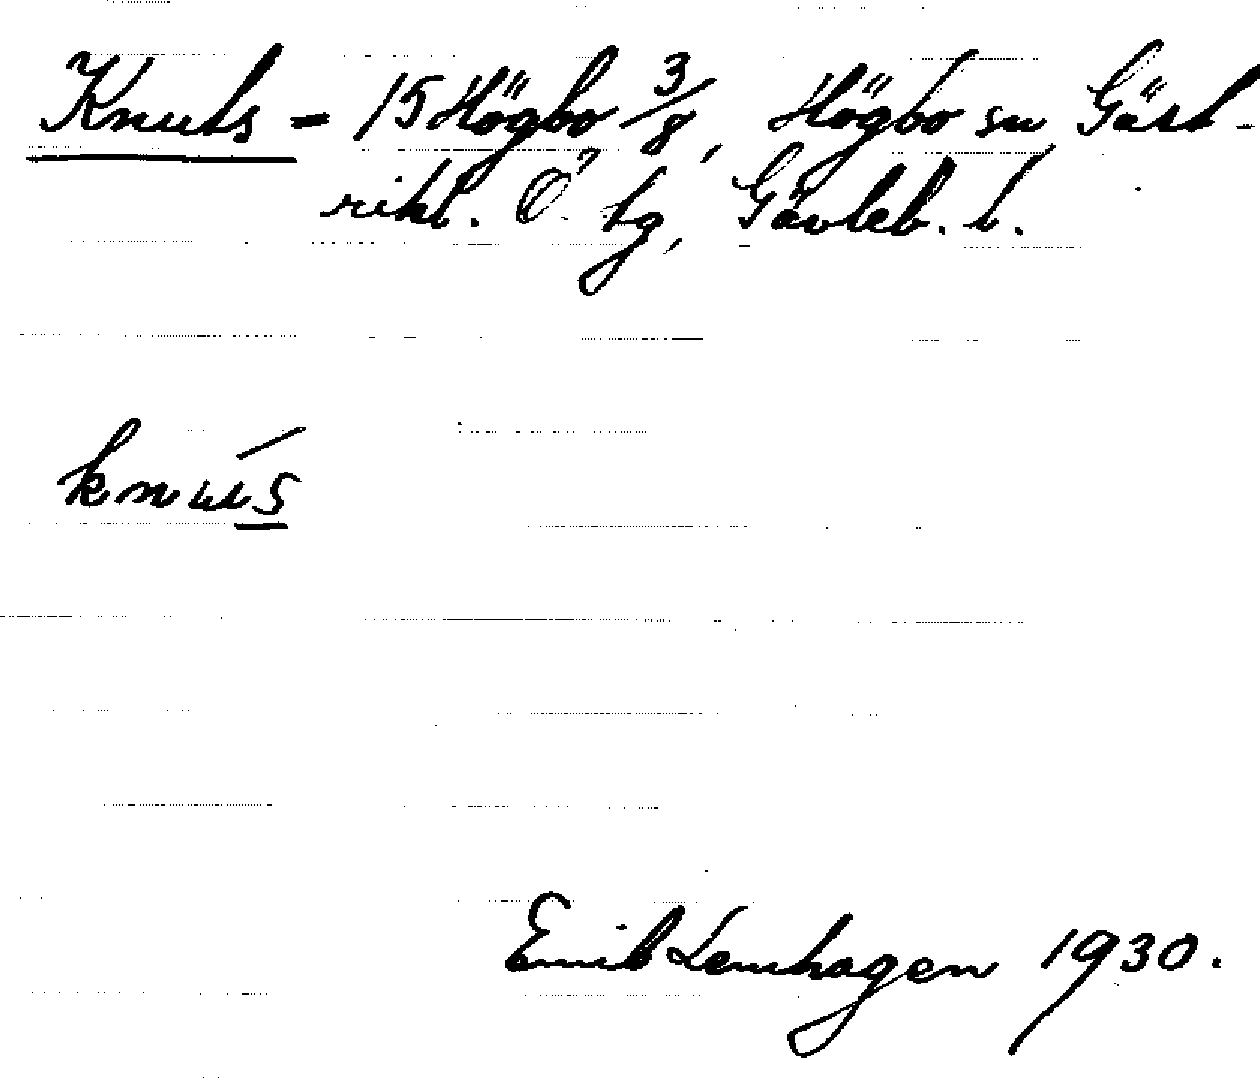 Knuts = 15 Högbo 3/8, Högbo sn Gäst-
rikl. Ö. tg, Gävleb. l.
knu´s
Emil Lenhagen 1930.